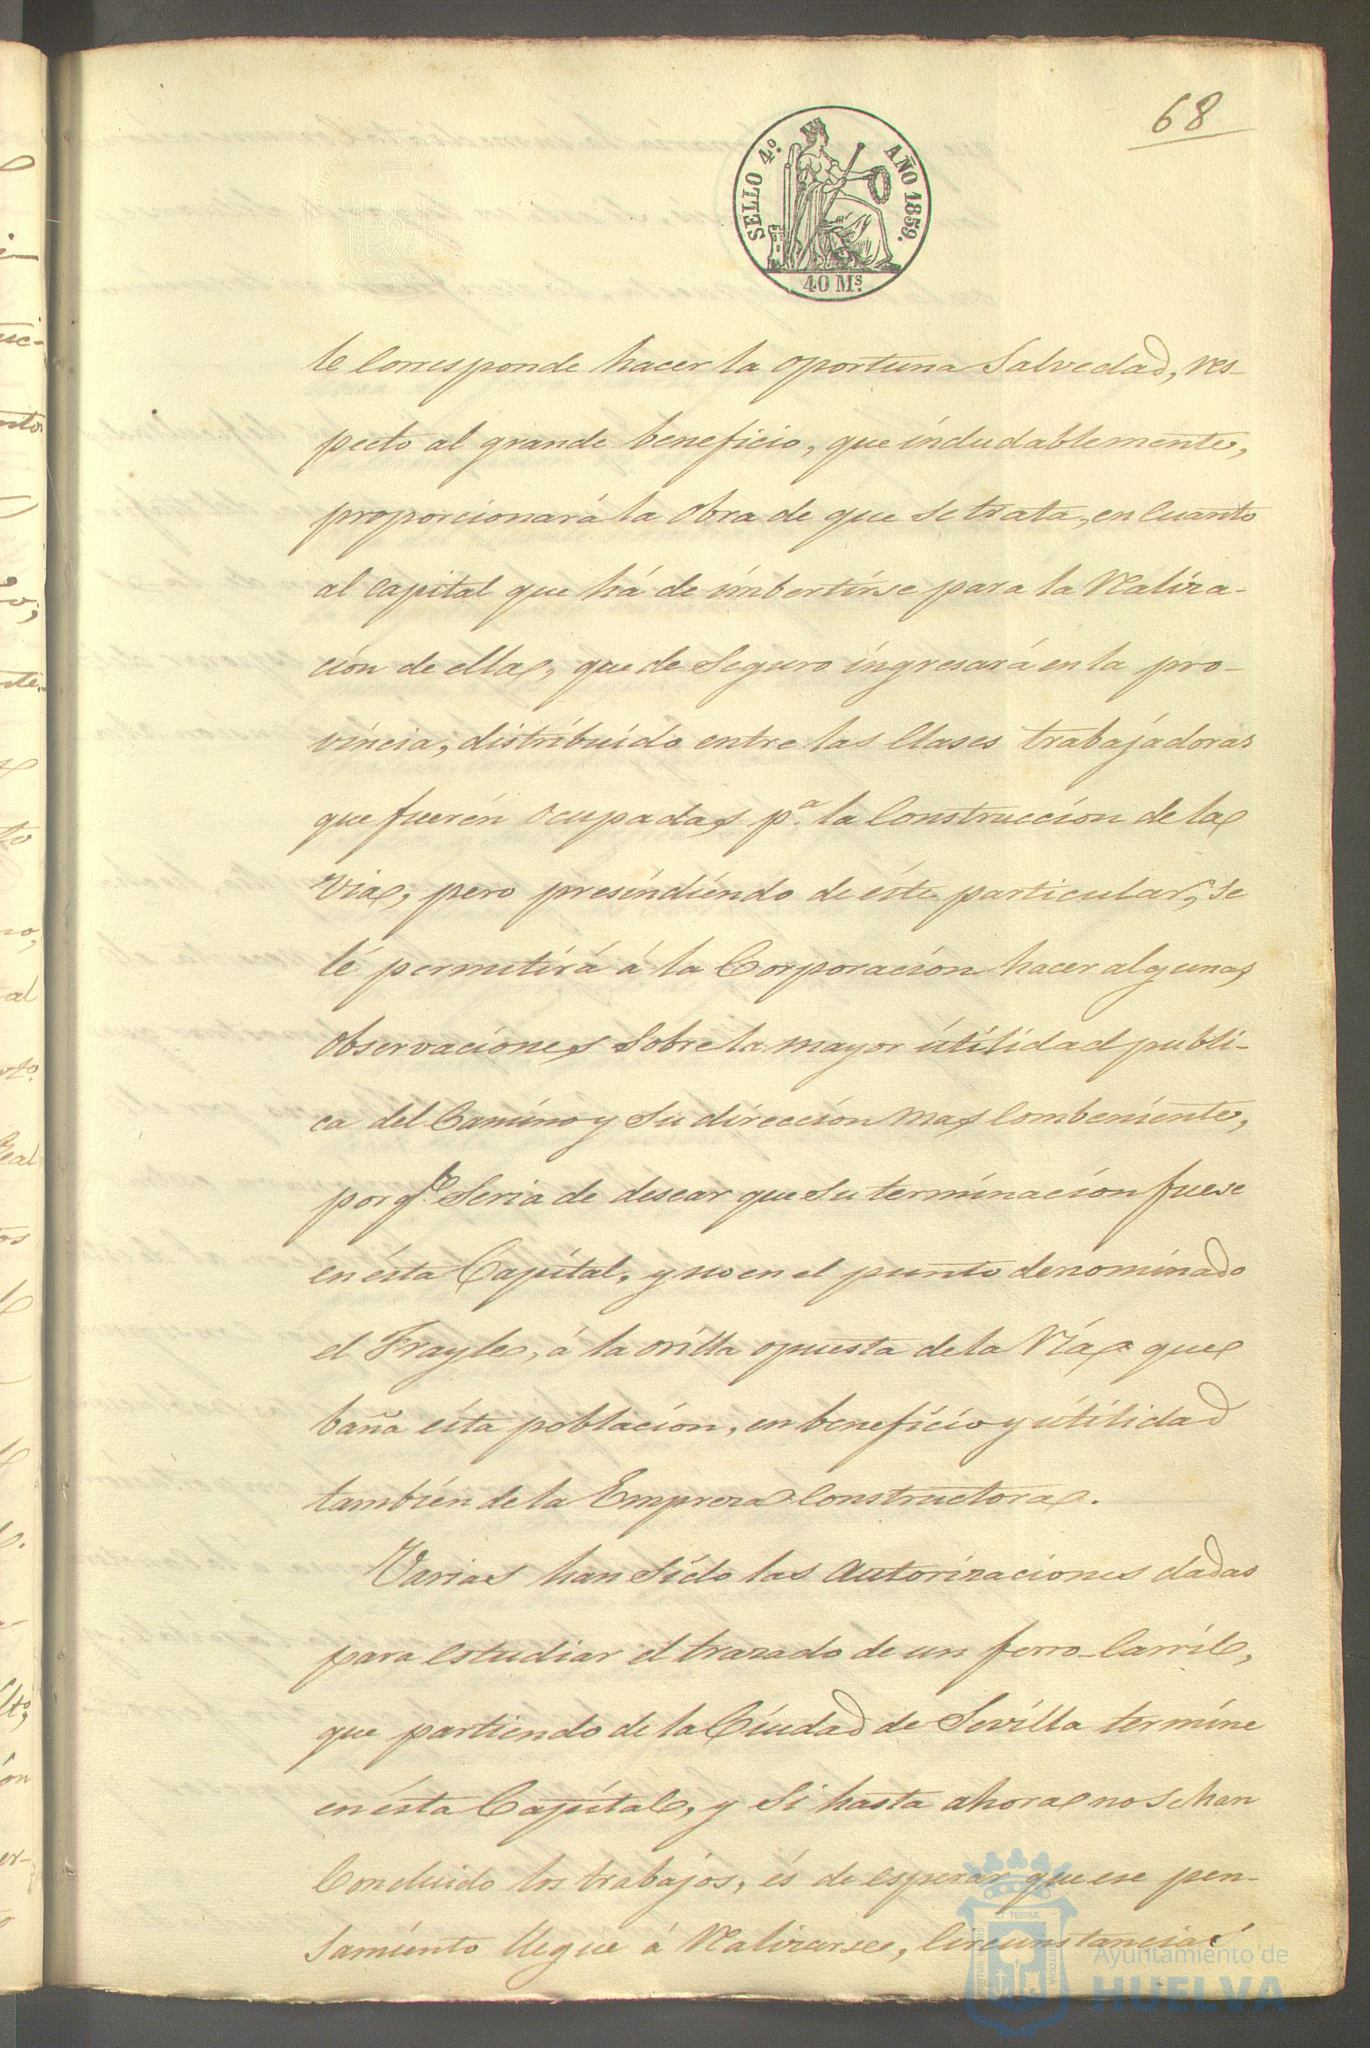 68
SELLO 4º AÑO 1859.
40 Ms.
le Corresponde hacer la oportuna Salvedad, res-
pecto al grande beneficio, que indudablemente,
proporcionará la Obra de que se trata, en Cuanto
al capital que há de imbertirse para la Realiza-
ción de ella, que de Seguro ingresará en la pro-
vincia, distribuido entre las Clases trabajadoras
que fuerén Ocupadas pª la Construccion de la
Via, pero presindiendo de éste particular, se
lé permitirá á la Corporación hacer algunas
Observaciones Sobre la mayor útilidad publi-
ca del Camino y Su direccion mas Combeniente,
por qe Seria de desear que Su terminacion fuese
en ésta Capital, y no en el punto denominado
el Frayle, á la orilla opuesta de la Ría que
baña ésta poblacion, en beneficio y útilidad
también de la Empreza Constructora.
Varias han Sido las Autorizaciones dadas
para estudiar el trazado de un ferro-Carril,
que partiendo de la Ciudad de Sevilla termine
en ésta Capital, y Si hasta ahora no se han
Concluido los trabajos, és de esperar que ese pen-
Samiento llegue á Realizarse, Circunstancia
Ayuntamiento de
HUELVA